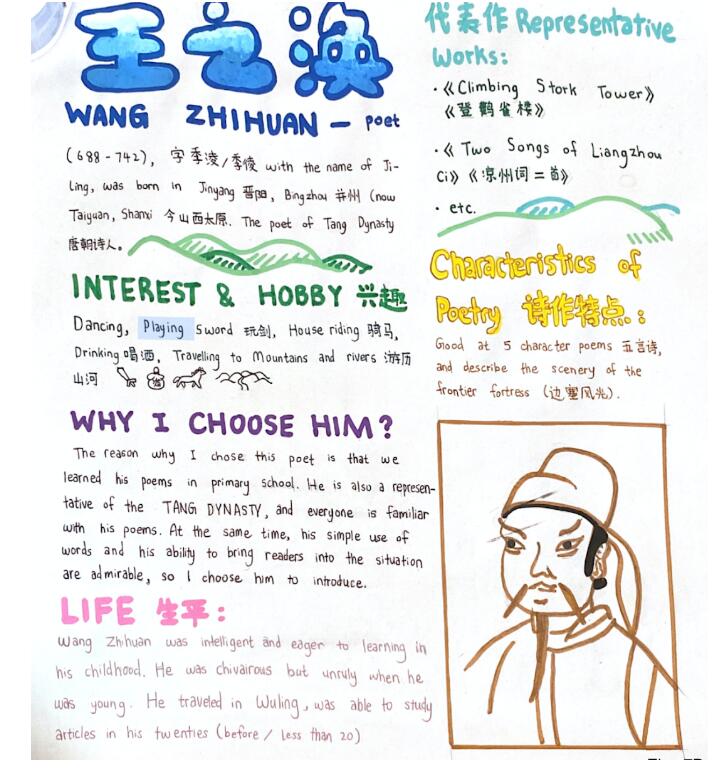 王之涣
WANG ZHIHUAN — poet
(688-742), 字季凌/季倰 with the name of Ji-
Ling, was born in Jinyang 晋阳, Bingzhou 并州 (now
Taiyuan, Shanxi 今山西太原. The poet of Tang Dynasty
唐朝诗人。
INTEREST & HOBBY 兴趣
Dancing, Playing Sword 玩剑, House riding 骑马,
Drinking 喝酒, Travelling to Mountains and rivers 游历
山河
WHY I CHOOSE HIM?
The reason why I chose this poet is that we
learned his poems in primary school. He is also a represen-
tative of the TANG DYNASTY, and everyone is familiar
with his poems. At the same time, his simple use of
words and his ability to bring readers into the situation
are admirable, so I choose him to introduce.
LIFE 生平:
Wang Zhihuan was intelligent and eager to learning in
his childhood. He was chivairous but unruly when he
was young. He traveled in Wuling, was able to study
articles in his twenties (before / less than 20)
代表作 Representative
Works:
·《Climbing Stork Tower》
《登鹳雀楼》
·《Two Songs of Liangzhou
Ci》《凉州词二首》
· etc.
Characteristics of
Poetry 诗作特点:
Good at 5 character poems 五言诗,
and describe the scenery of the
frontier fortress (边塞风光).